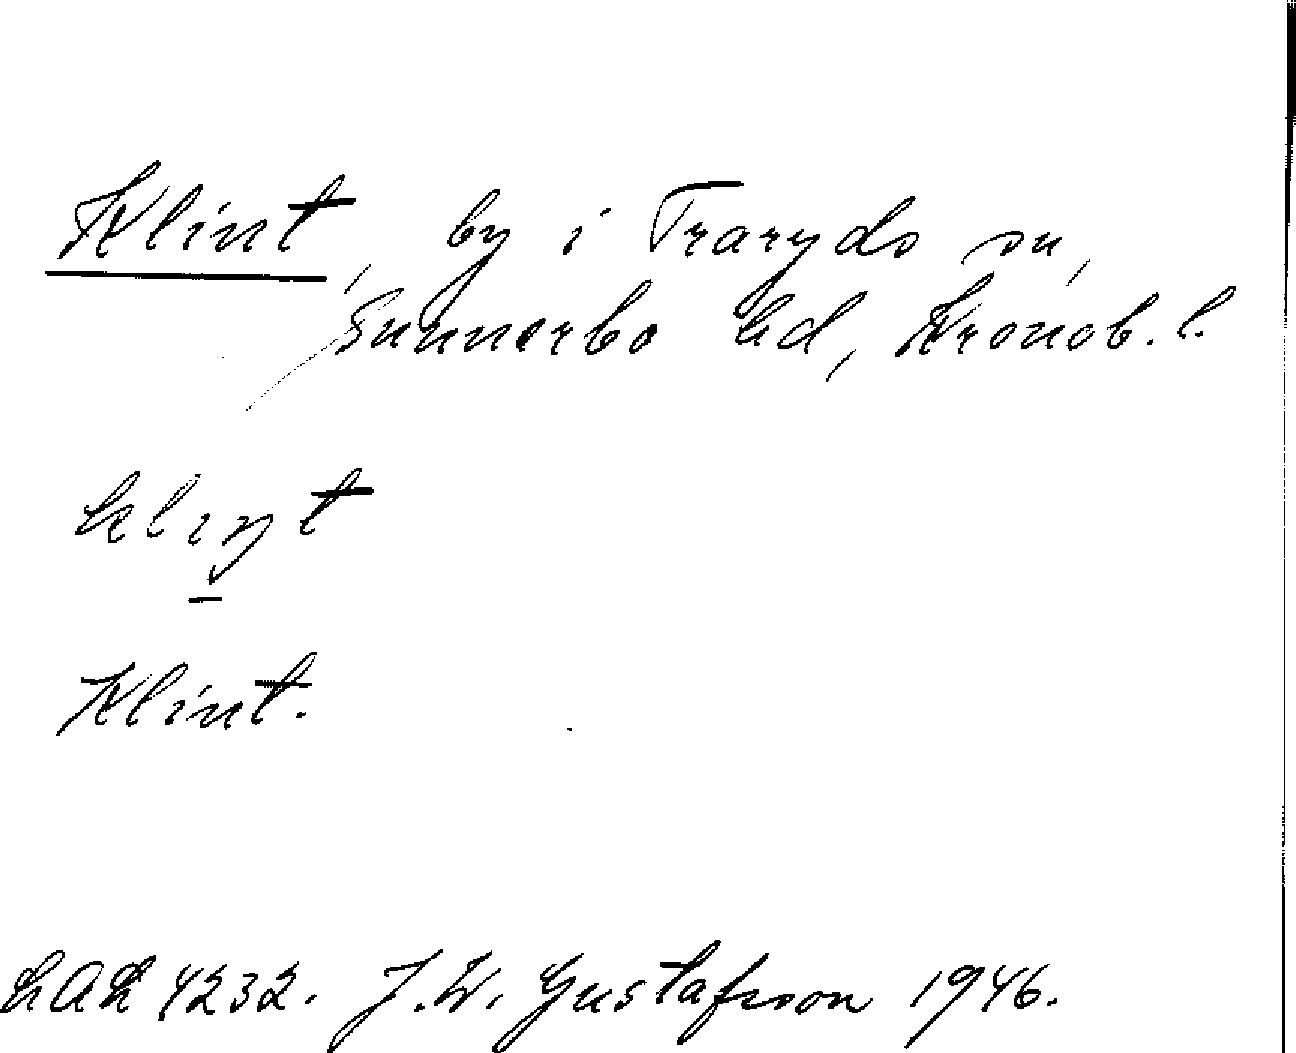 Klint, by i Traryds sn,
Sunnerbo hd, Kronob. l.
klint
Klint.
LAL 4232. J.W. Gustafsson 1946.